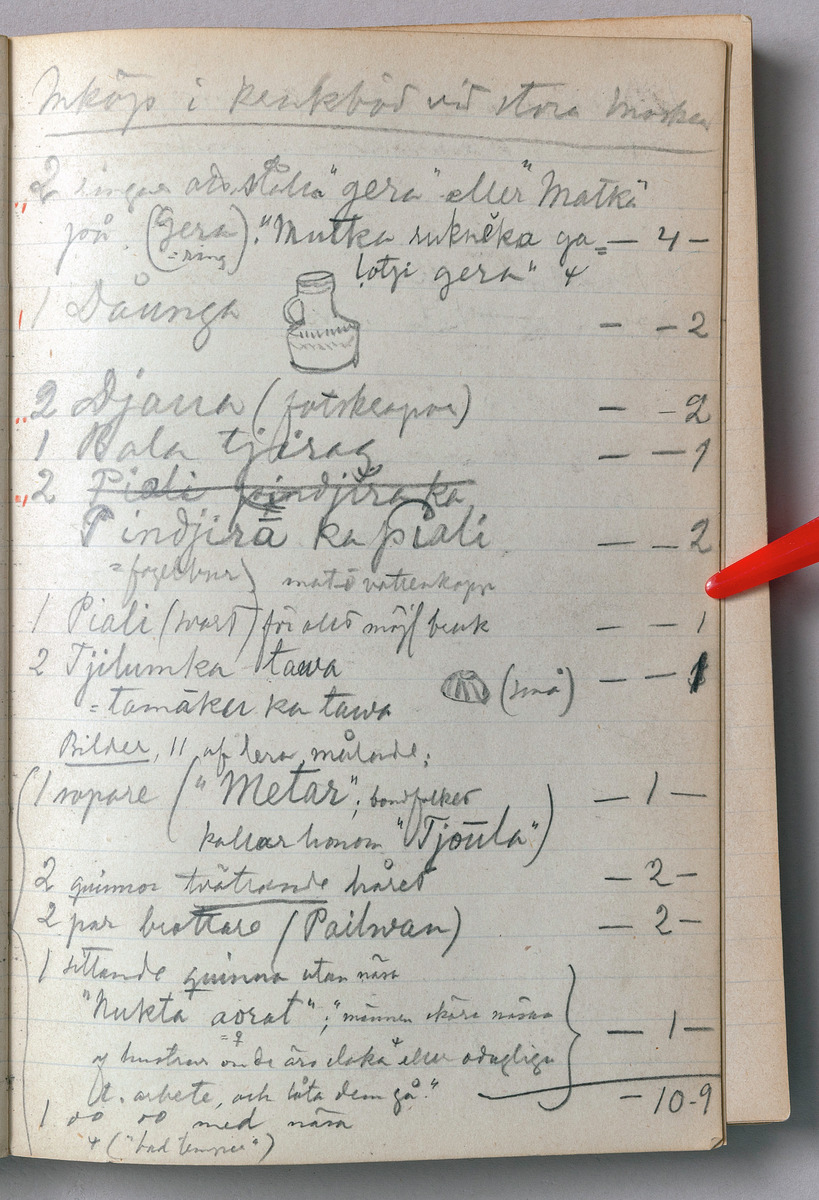 Inköp i krukbod vid stora mosken
2 ringar att ställa "gera" eller "Matka"
på (Gera). "Mutka rukněka ga= — 4 —
= ring lotji gera" 4
1 Dåunga — — 2
2 Djaua (fotskrapor) — — 2
1 Bala tjirag — — 1
2 Piali pindjira ka
Pindjirā ka piali — — 2
= fågelbur) mat o vattenkopp
1 Piali (svart) för allt möjl bruk — — 1
2 Tjilumka tawa (små) — — 1
= tamāku ka tawa
Bilder, 11 af lera, målade;
1 sopare ("Metar"; bondfolket — 1 —
kallar honom "Tjoūla")
2 quinnor tvättande håret — 2 —
2 par brottare (Pailwan) — 2 —
1 sittande quinna utan näsa
"Nukta aorat"; "männen skära näsan — 1 —
= ♀
af hustrur om de äro elaka 4 eller odugliga
t. arbete, och låta dem gå." — 10-9
1 oo oo med näsa
4 ("bad temper")